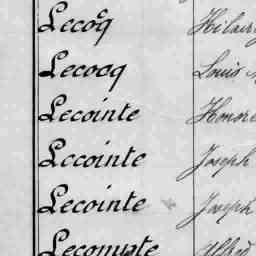 Lecocq Hilair
Lecocq Louis
Lecointe Honoré
Lecointe Joseph
Lecointe Joseph
Lecompte Alfred